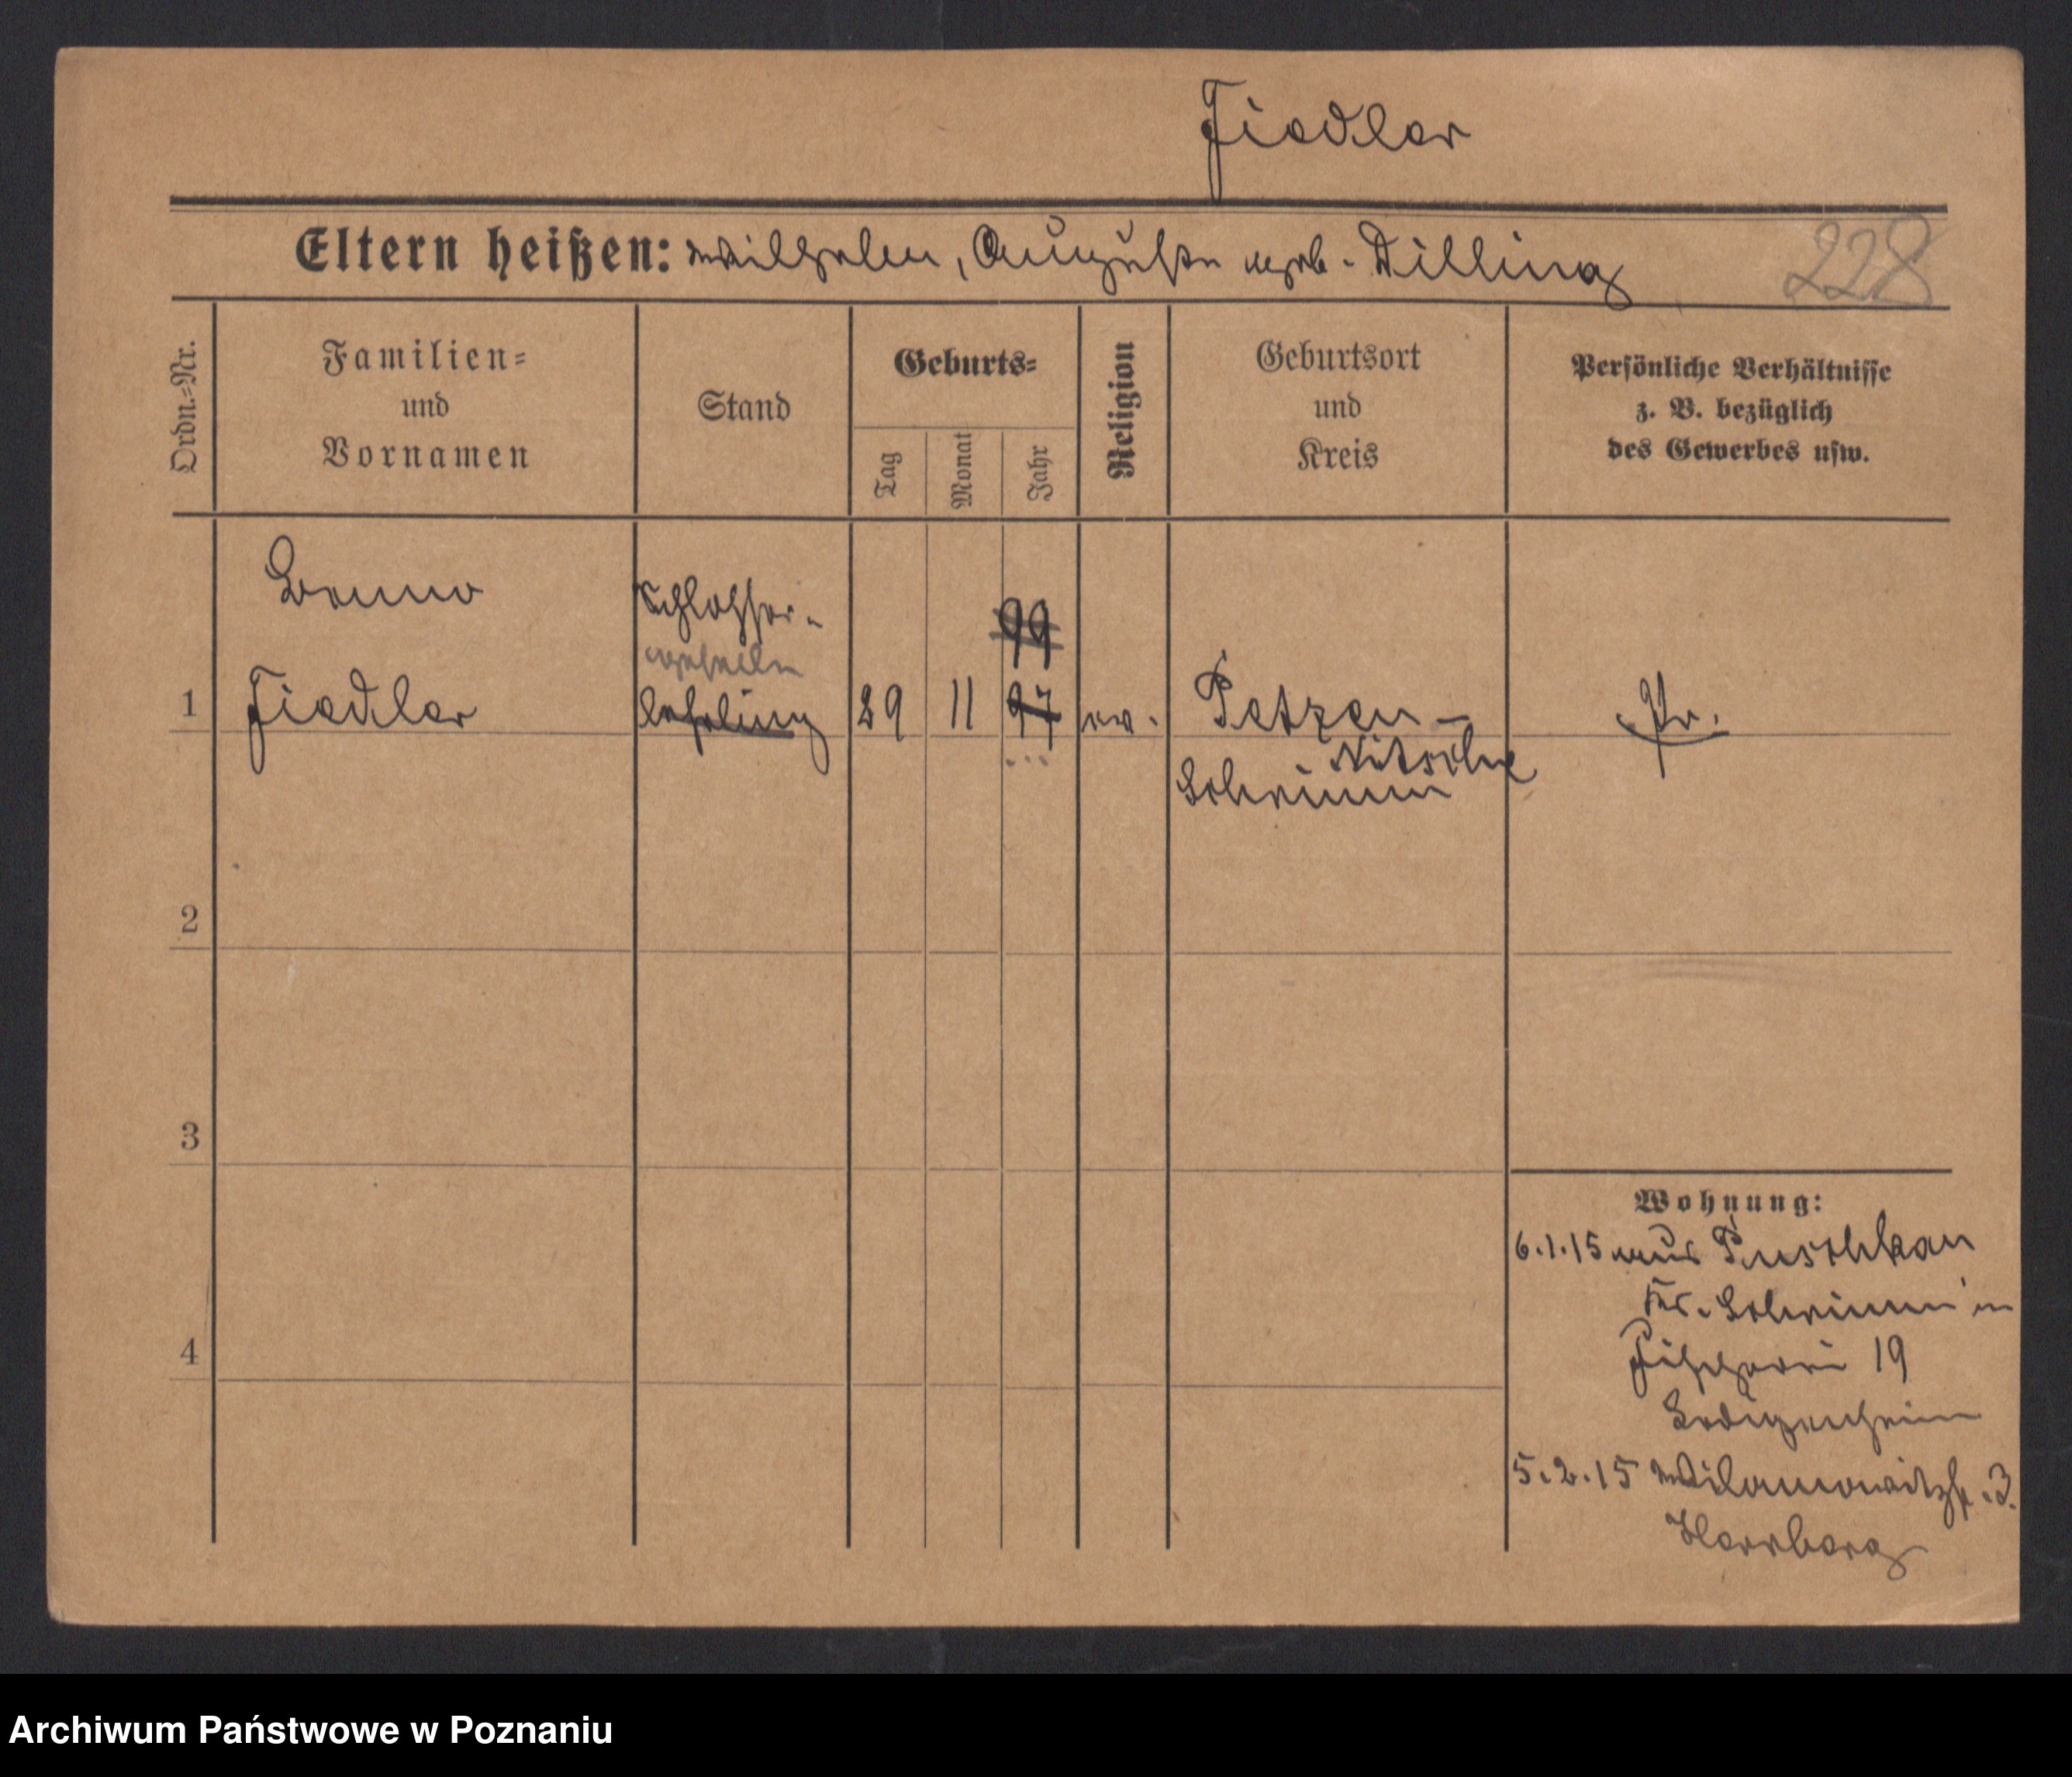 Fiedler
Eltern heißen: Wilhelm, Auguste geb. Dilling
228
Ordn.-Nr.
Familien- und Vornamen
Stand
Geburts-
Tag
Monat
Jahr
Religion
Geburtsort und Kreis
Persönliche Verhältnisse z. B. bezüglich des Gewerbes usw.
Bruno
Schlosser-
99
geselle
1 Fiedler lehrling 29 11 97 ev. Petzen- Pr.
Nitsche
Schrimm
2
3
4
Wohnung:
6.1.15 aus Puschkau
Krs. Schrimm in
Fischerei 19
Ledigenheim
5.2.15 Wilamowitzstr. 3.
Herrberg
Archiwum Państwowe w Poznaniu